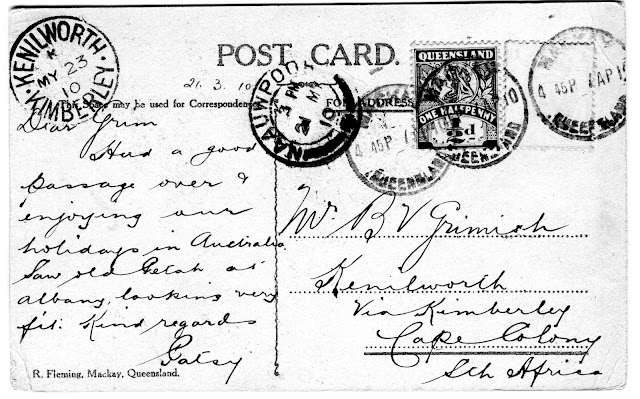 POST CARD.
21. 3. 10
This Space may be used for Correspondence
FOR ADDRESS
KENILWORTH
MY 23
10
KIMBERLEY
NAAUWPOORT
3 PM
21 MY
10
QUEENSLAND
ONE HALFPENNY
½d
4 45P
QUEENSLAND
4 45P AP
QUEENSLAND
Dear Grim
Had a good
passage over &
enjoying our
holidays in Australia
Saw old at
Albany, looking very
fit. Kind regards
Patsy
Mr B V Grimish
Kenilworth
Via Kimberley
Cape Colony
Sth Africa
R. Fleming, Mackay, Queensland.